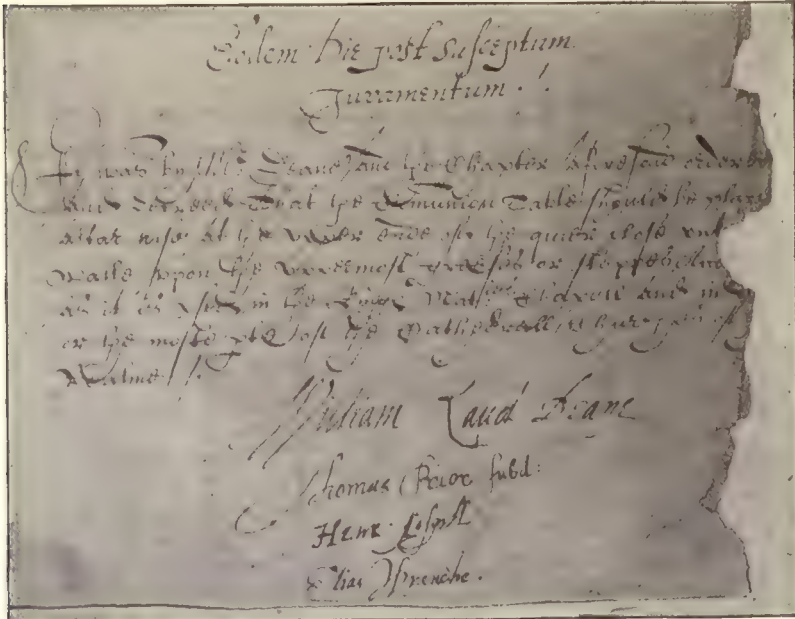 Eodem die post susceptum
Juramentum.
Yt was by Mr Deane and the Chapter aforesaid ordere
and decreed That the Comunion Table should be plac
altar wise at the upper ende of the quier close unt
walle upon the uppermost greeses or steppes
as it is used in the Kings Maties Chapell and in
or the moste pte of the Cathedrall Churches of
Realme
William Laud Deane
Thomas Prior subd:
Henr:
Elias Wrenche.